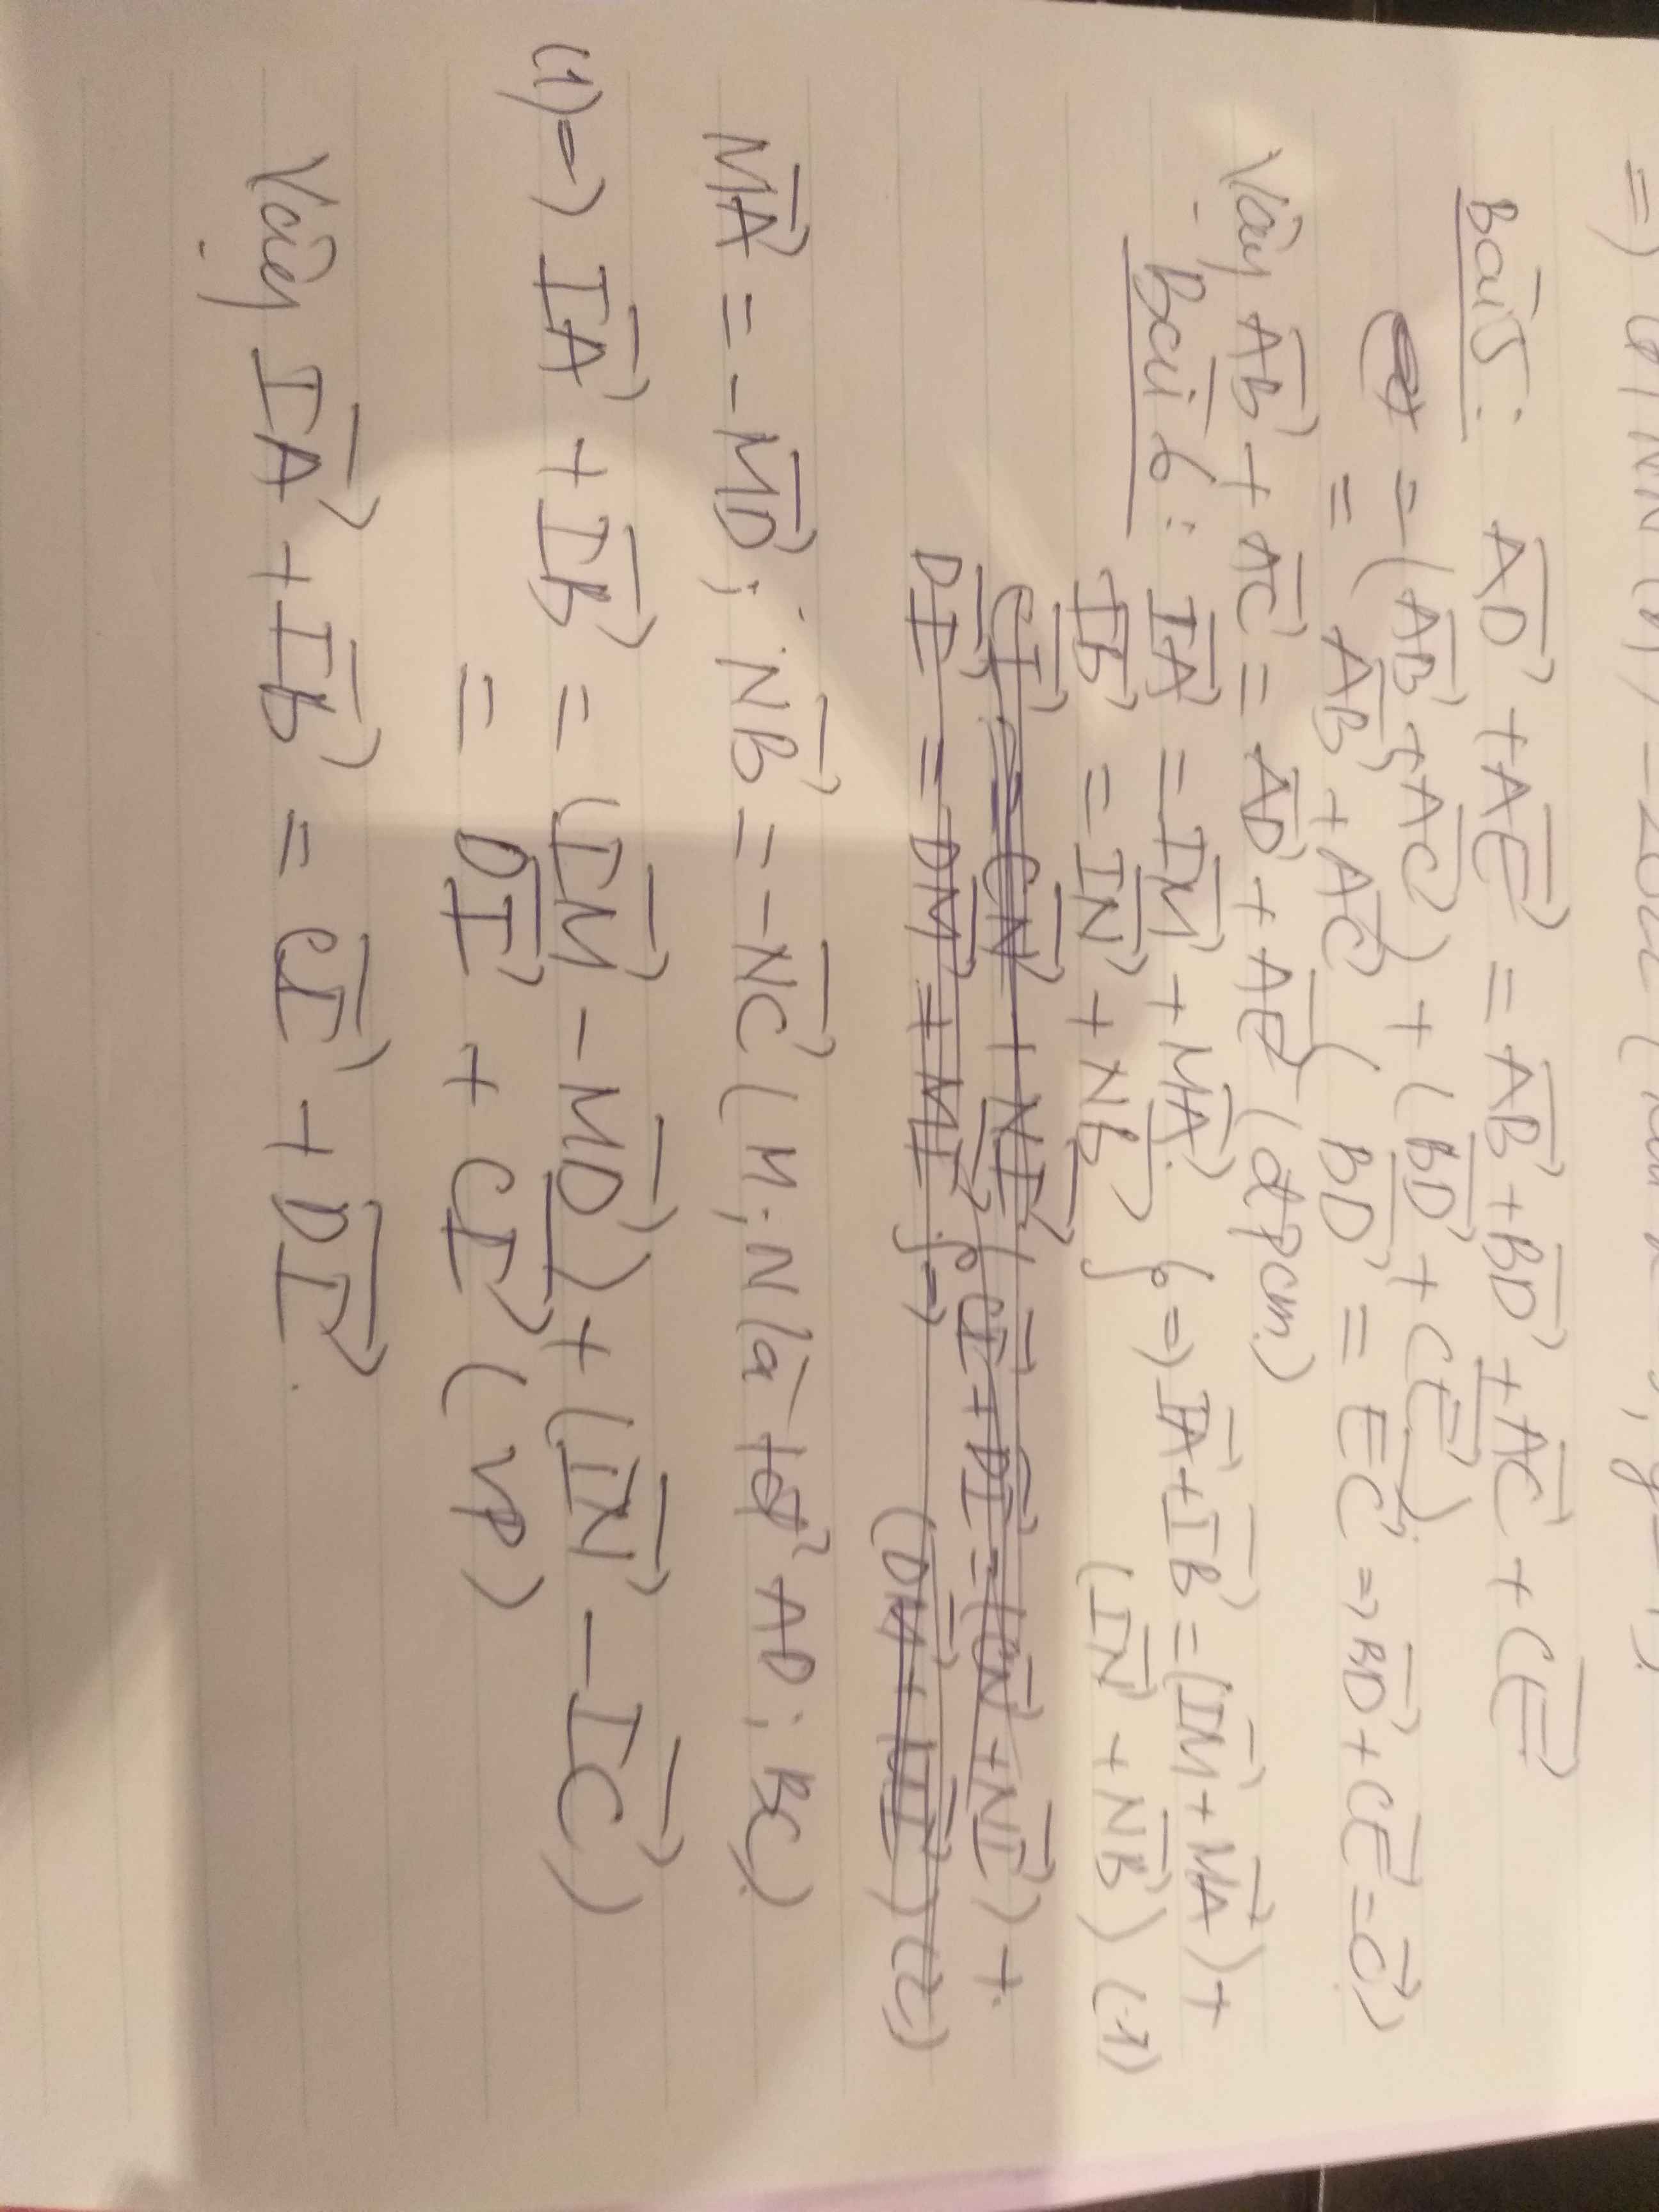 Bài 5: AD⃗ + AE⃗ = AB⃗ + BD⃗ + AC⃗ + CE⃗
= (AB⃗ + AC⃗) + (BD⃗ + CE⃗)
= AB⃗ + AC⃗ ( BD⃗ = EC⃗ => BD⃗ + CE⃗ = O⃗)
Vậy AB⃗ + AC⃗ = AD⃗ + AE⃗ (đpcm)
Bài 6: IA⃗ = IM⃗ + MA⃗
IB⃗ = IN⃗ + NB⃗ } => IA⃗ + IB⃗ = (IM⃗ + MA⃗) +
(IN⃗ + NB⃗) (1)
CI⃗ = CN⃗ + NI⃗
DI⃗ = DM⃗ + MI⃗ } => CI⃗ + DI⃗ = (CN⃗ + NI⃗) +
(DM⃗ + MI⃗) (2)
MA⃗ = -MD⃗; NB⃗ = -NC⃗ (M; N là tđ AD; BC)
(1) => IA⃗ + IB⃗ = (IM⃗ - MD⃗) + (IN⃗ - IC⃗)
= DI⃗ + CI⃗ (VP)
Vậy IA⃗ + IB⃗ = CI⃗ + DI⃗.